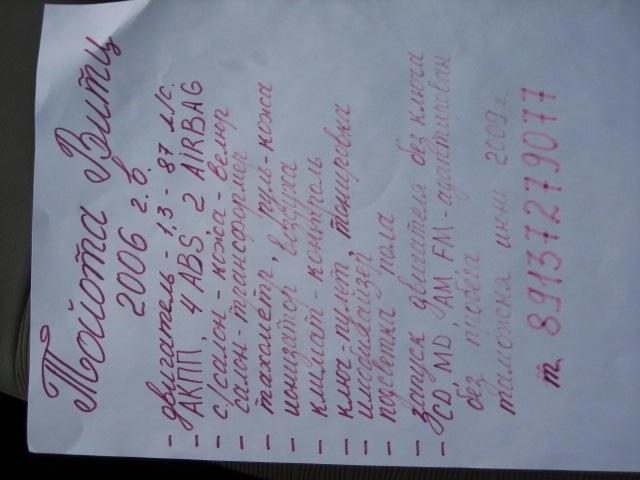 Тойота Витц
2006 г.в.
- двигатель - 1,3 - 87 л/с.
- АКПП, 4 ABS 2 AiRBAG
- с/салон - кожа - велюр
- салон - трансформер
- тахометр, руль - кожа
- ионизатор воздуха
- климат - контроль
- ключ - пульт, тонировка
- имобилайзер
- подсветка пола
- запуск двигателя без ключа
- CD MD, AM FM - адаптирован
без пробега
таможня июнь 2009 г.
т. 89137279077